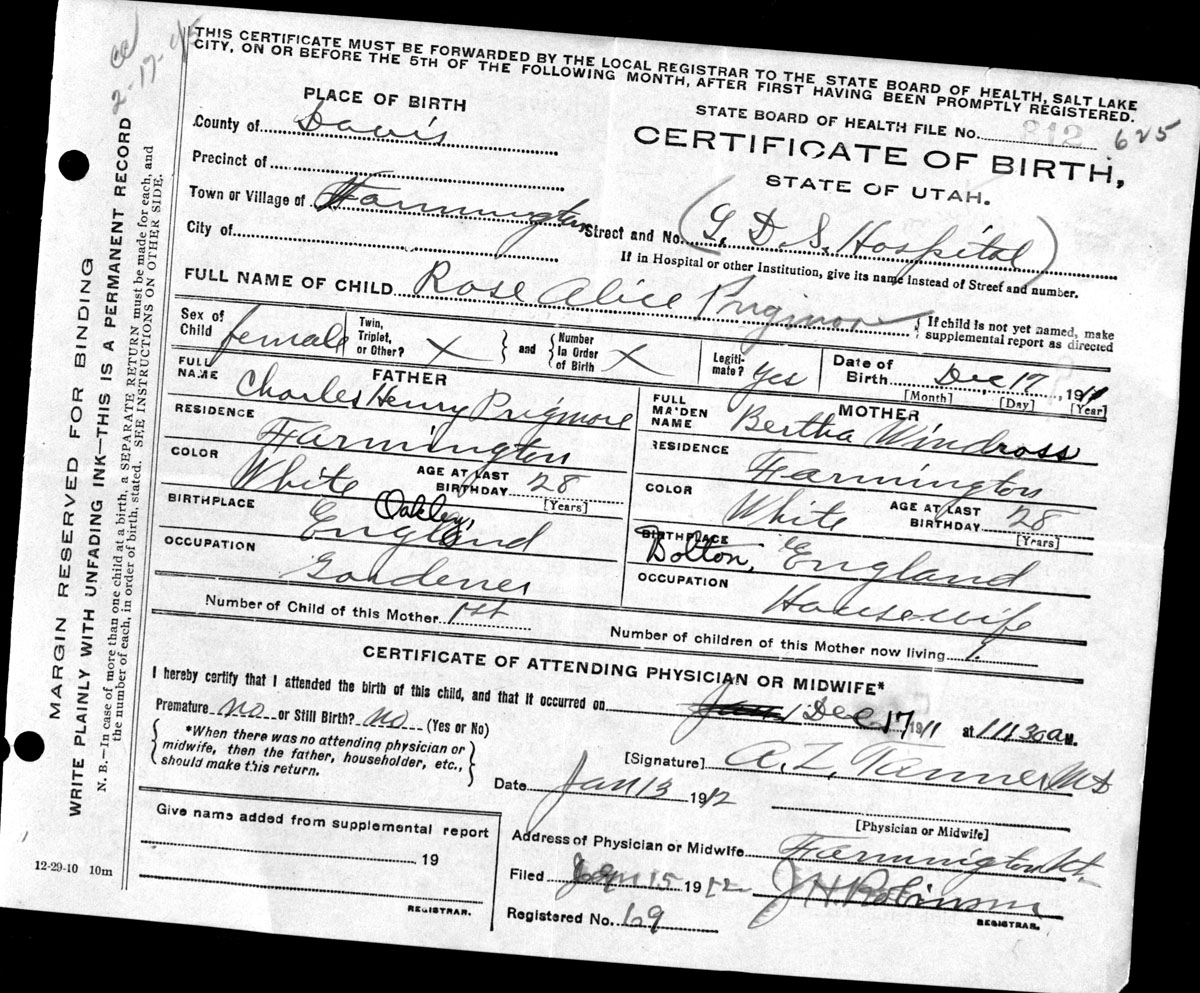 cc
2-17-45
THIS CERTIFICATE MUST BE FORWARDED BY THE LOCAL REGISTRAR TO THE STATE BOARD OF HEALTH, SALT LAKE
CITY, ON OR BEFORE THE 5TH OF THE FOLLOWING MONTH, AFTER FIRST HAVING BEEN PROMPTLY REGISTERED.
PLACE OF BIRTH
STATE BOARD OF HEALTH FILE No. 812 625
County of Davis
CERTIFICATE OF BIRTH,
Precinct of
STATE OF UTAH.
Town or Village of Farmington Street and No. (L. D. S. Hospital)
City of
If in Hospital or other Institution, give its name instead of Street and number.
FULL NAME OF CHILD Rose Alice Prigmore { If child is not yet named, make
supplemental report as directed
Sex of Child female Twin, Triplet, or Other? X } and { Number In Order of Birth X Legiti-mate? yes Date of Birth Dec 17, 1911
[Month] [Day] [Year]
FATHER
FULL NAME Charles Henry Prigmore
RESIDENCE Farmington
COLOR White AGE AT LAST BIRTHDAY 28
[Years]
BIRTHPLACE Oakley, England
OCCUPATION Gardener
MOTHER
FULL MAIDEN NAME Bertha Windross
RESIDENCE Farmington
COLOR White AGE AT LAST BIRTHDAY 28
[Years]
BIRTHPLACE Bolton, England
OCCUPATION Housewife
Number of Child of this Mother 1st
Number of children of this Mother now living 1
CERTIFICATE OF ATTENDING PHYSICIAN OR MIDWIFE*
I hereby certify that I attended the birth of this child, and that it occurred on Dec 17 1911 at 11 30 a M.
Premature no or Still Birth? no (Yes or No)
{ *When there was no attending physician or
midwife, then the father, householder, etc.,
should make this return. }
[Signature] A. Z. Tanner MD
Date Jan 13 1912
[Physician or Midwife]
Give name added from supplemental report
19
REGISTRAR.
Address of Physician or Midwife Farmington Ut.
Filed Jan 15 1912 J H Robinson
REGISTRAR.
Registered No. 69
12-29-10 10m
MARGIN RESERVED FOR BINDING
WRITE PLAINLY WITH UNFADING INK—THIS IS A PERMANENT RECORD
N. B.—In case of more than one child at a birth, a SEPARATE RETURN must be made for each, and
the number of each, in order of birth, stated. SEE INSTRUCTIONS ON OTHER SIDE.